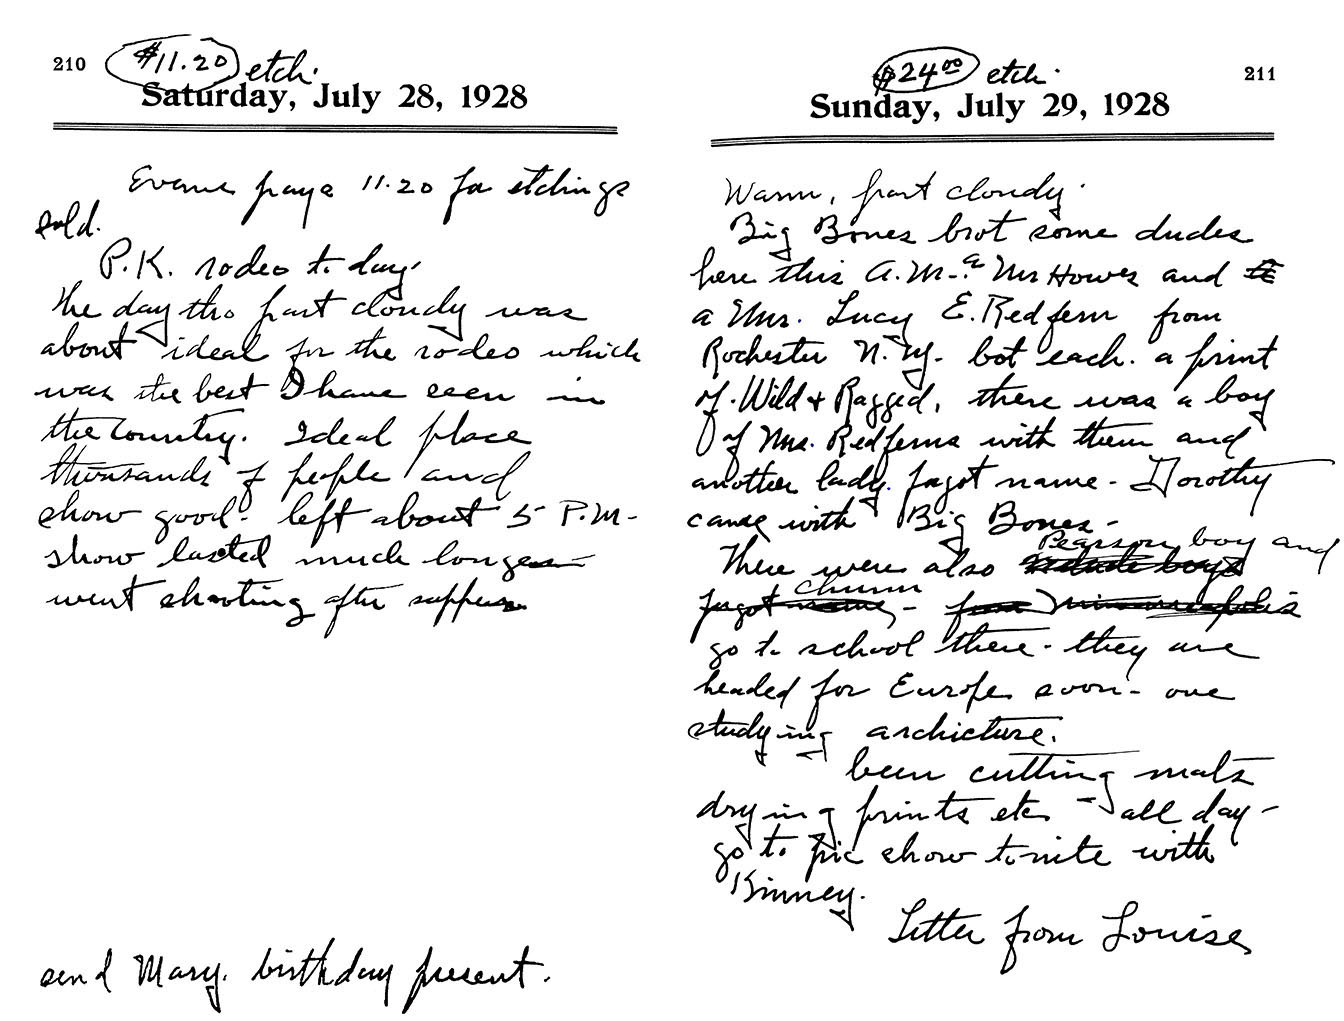 210
$11.20 etch.
Saturday, July 28, 1928
Evans pays 11.20 for etchings
sold.
P.K. rodeo to day.
The day tho part cloudy was
about ideal for the rodeo which
was the best I have seen in
the country. Ideal place
thousands of people and
show good - left about 5 P.M. -
show lasted much longer -
went shooting after supper
send Mary. birthday present.
211
$24.00 etch.
Sunday, July 29, 1928
Warm, part cloudy.
Big Bones brot some dudes
here this A.M. - a Mrs Howes and
a Mrs. Lucy E. Redfern from
Rochester N.Y. - bot each. a print
of. Wild + Ragged, there was a boy
of Mrs. Redferns with them and
another lady. forgot name - Dorothy
came with Big Bones -
Pearson boy and
There were also
chum
forgot name -
go to school there - they are
headed for Europe soon - one
studying archicture.
been cutting mats
drying prints etc - all day -
go to pic show tonite with
Kinney.
Letter from Louise